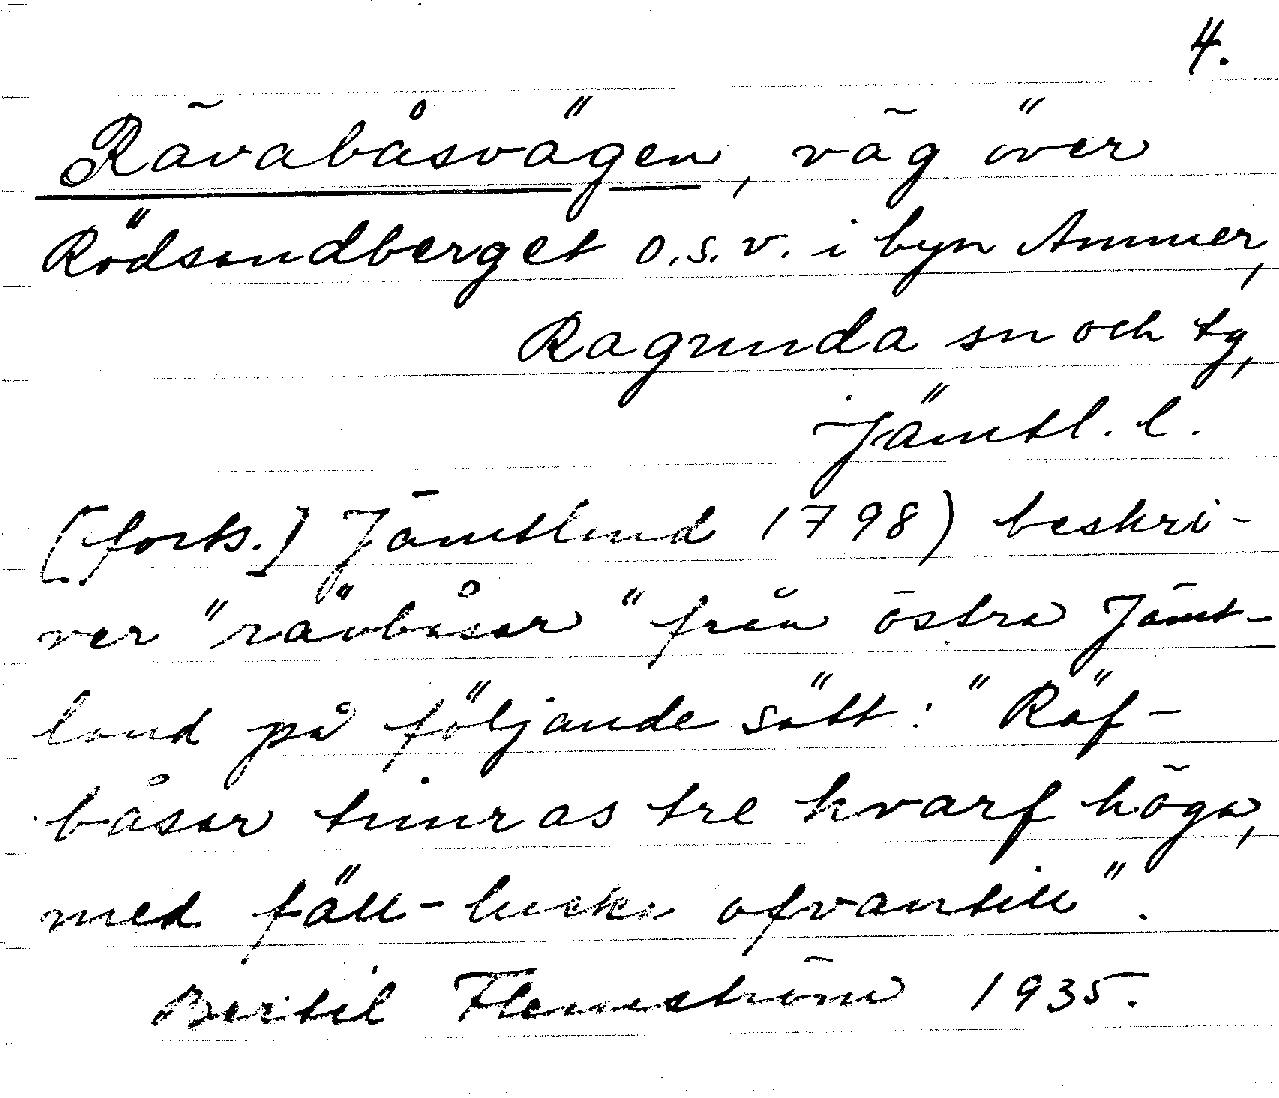 4.
Rävabåsvägen, väg över
Rödsandberget o.s.v. i byn Ammer,
Ragunda sn och tg,
Jämtl. l.
[forts.] Jämtland 1798) beskri-
ver "rävbåsar" från östra Jämt-
land på följande sätt: "Räf-
båsar timras tre hvarf höga,
med fäll-lucka ofvantill".
Bertil Flemström 1935.